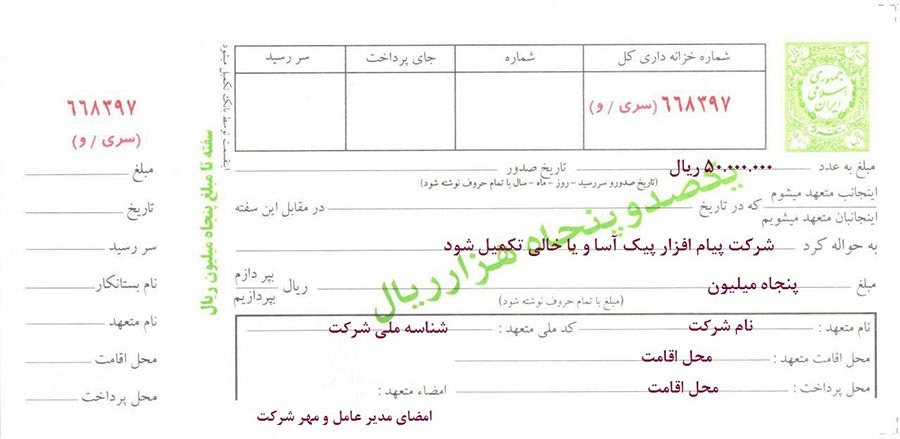 جمهوری
اسلامی
ایران
شماره خزانه داری کل
شماره
جای پرداخت
سر رسید
۶۶۸۳۹۷ (سری / و)
اینقسمت توسط بانک تکمیل میشود
سفته تا مبلغ پنجاه میلیون ریال
یکصدو پنجاه هزار ریال
مبلغ به عدد ۵۰.۰۰۰.۰۰۰ ریال تاریخ صدور
(تاریخ صدورو سررسید - روز - ماه - سال با تمام حروف نوشته شود)
اینجانب متعهد میشوم
اینجانبان متعهد میشویم
که در تاریخ در مقابل این سفته
به حواله کرد شرکت پیام افزار پیک آسا و یا خالی تکمیل شود
مبلغ پنجاه میلیون ریال
بپردازم
بپردازیم
(مبلغ با تمام حروف نوشته شود)
نام متعهد : نام شرکت کد ملی متعهد : شناسه ملی شرکت
محل اقامت متعهد : محل اقامت
محل پرداخت : محل اقامت امضاء متعهد :
امضای مدیر عامل و مهر شرکت
۶۶۸۳۹۷
(سری / و)
مبلغ
تاریخ
سر رسید
نام بستانکار
نام متعهد
محل اقامت
محل پرداخت